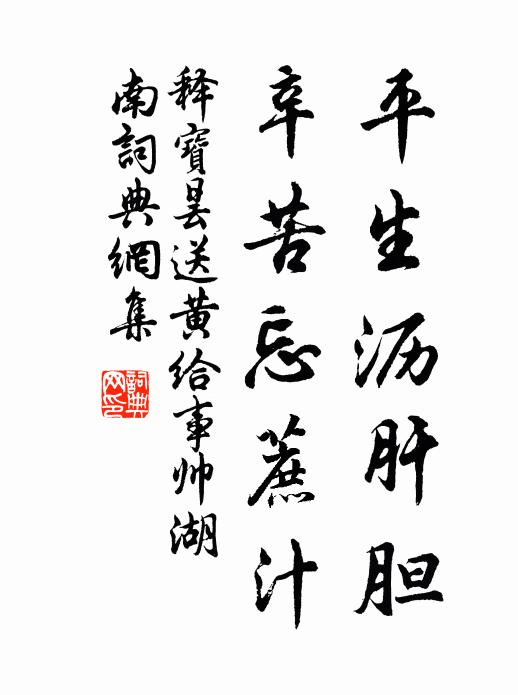 平生沥肝胆
辛苦忘蔗汁
释寶昙送黄给事帅湖
南詞典網集
詞典网印